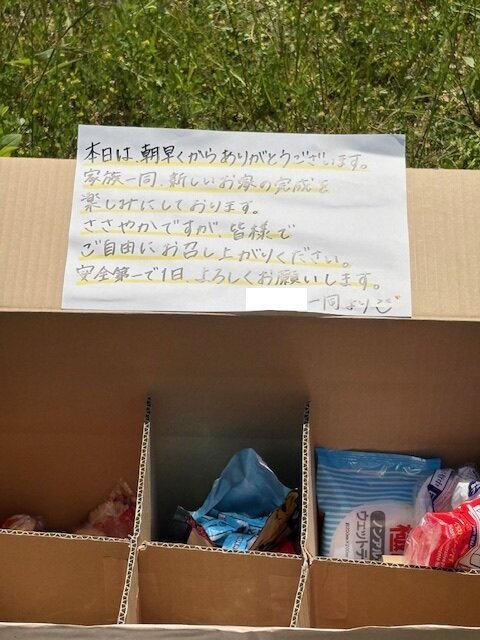 本日は、朝早くからありがとうございます。
家族一同、新しいお家の完成を
楽しみにしております。
ささやかですが、皆様で
ご自由にお召し上がりください。
安全第一で1日、よろしくお願いします。
一同より
ノンアルコール
ウェット